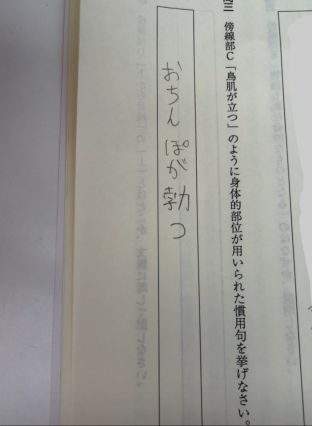 四三 傍線部C「鳥肌が立つ」のように身体的部位が用いられた慣用句を挙げなさい。
おちんぽが勃つ